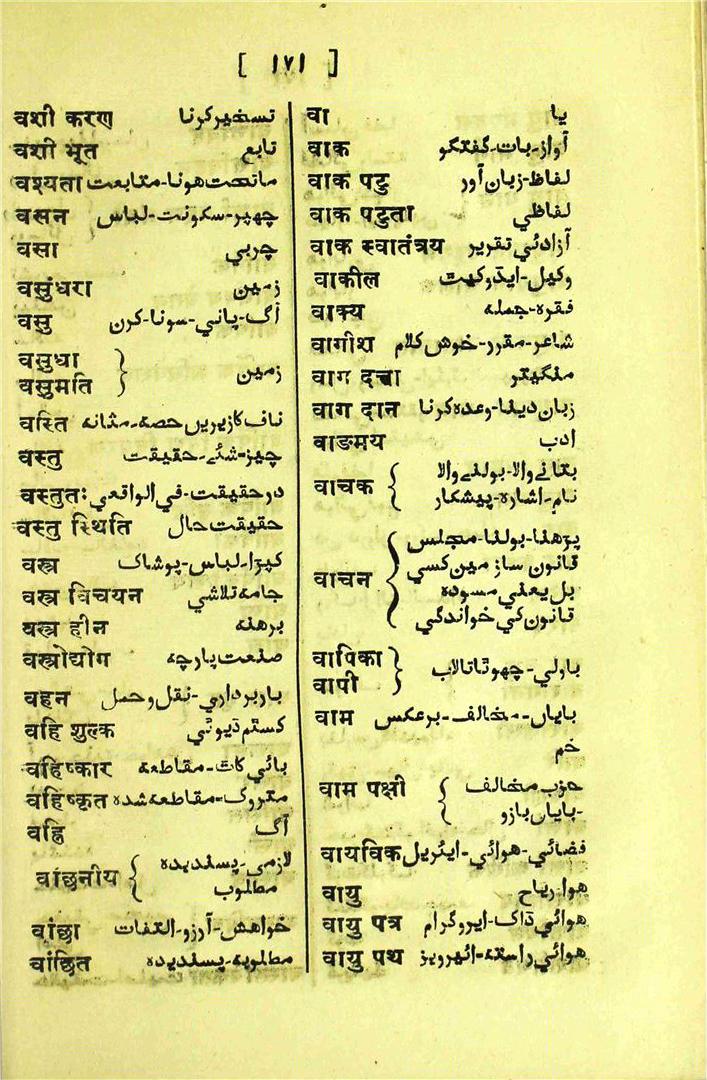 [ ۱۷۱ ]
वशी करण تسخیر کرنا
वशी भूत تابع
वश्यता ماتحت ہونا-متابعت
वसन چھپر-سکونت-لباس
वसा چربي
वसुंधरा زمین
वसु آگ-پاني-سونا-کرن
वसुधा
वसुमति } زمین
वस्ति ناف کا زیریں حصہ-مثانہ
वस्तु چیز-شئے-حقیقت
वस्तुतः درحقیقت-في الواقعي
वस्तु स्थिति حقیقت حال
वस्त्र کپڑا-لباس-پوشاک
वस्त्र विचयन جامہ تلاشي
वस्त्र हीन برھنہ
वस्त्रोद्योग صنعت پارچہ
वहन باربرداري-نقل و حمل
वहि शुल्क کسٹم ڈیوٹي
वहिष्कार بائي کاٹ-مقاطعہ
वहिष्कृत متروک-مقاطعہ شدہ
वह्नि آگ
वांछनीय { لازمي-پسندیدہ
مطلوب
वांछा خواھش-آرزو-التفات
वांछित مطلوبہ-پسندیدہ
वा یا
वाक آواز-بات-گفتگو
वाक पटु لفاظ-زبان آور
वाक पटुता لفاظي
वाक स्वातंत्रय آزادئي تقریر
वाकील وکیل-ایڈوکیٹ
वाक्य فقرہ-جملہ
वागीश شاعر-مقرر-خوش کلام
वाग दत्ता منگیتر
वाग दान زبان دینا-وعدہ کرنا
वाङमय ادب
वाचक { بتانے والا-بولنے والا
نام-اشارہ-پیشکار
वाचन { پڑھنا-بولنا-مجلس
قانون ساز مین کسي
بل یعني مسودہ
قانون کي خواندگي
वापिका
वापी } باولي-چھوٹا تالاب
वाम بایاں-مخالف-برعکس
خم
वाम पक्षी { حزب مخالف
-بایاں بازو
वायविक فضائي-ھوائي-ایئریل
वायु ھوا-ریاح
वायु पत्र ھوائي ڈاک-ایروگرام
वायु पथ ھوائي راستہ-ائیرویز